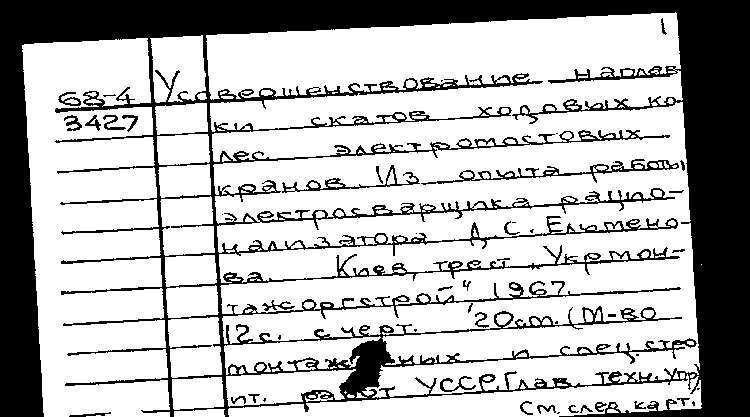 1
68-4 Усовершенствование наплав-
3427 ки скатов ходовых ко-
лес электромостовых
кранов. Из опыта работы
электросварщика рацио-
нализатора Д. С. Ельмено-
ва. Киев, трест „Укрмон-
тажоргстрой", 1967.
12 с. с черт. 20 см. (М-во
монтажных и спец. строит.
работ УССР. Глав. техн. упр)
См. след. карт.